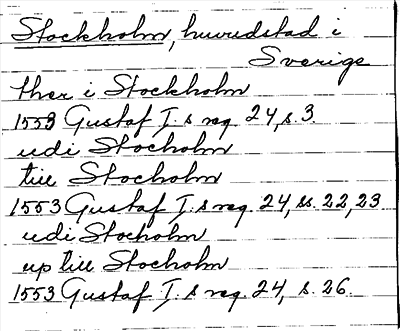 Stockholm, huvudstad i
Sverige
ther i Stockholm
1553 Gustaf I.s reg. 24, s. 3.
udi Stocholm
till Stocholm
1553 Gustaf I.s reg. 24, ss. 22, 23
udi Stocholm
up till Stocholm
1553 Gustaf I.s reg. 24, s. 26.